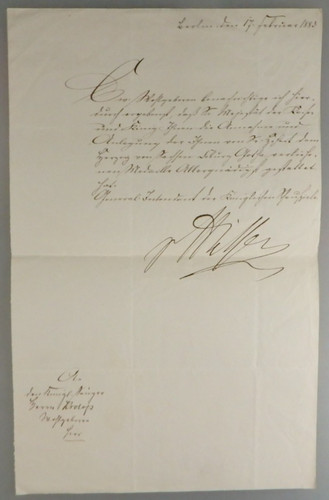 Berlin den 17. Februar 1883
Ew. Wohlgeboren benachrichtige ich hier-
durch ergebenst, daß Se. Majestät der Kaiser
und König Ihnen die Annahme und
Anlegung der Ihnen von Sr. Hoheit dem
Herzog von Sachsen Coburg Gotha verliehe-
nen Medaille Allergnädigst gestattet
hat.
General Intendant der Königlichen Schauspiele
v Hülsen
An
den Königl. Sänger
Herrn
Wohlgeboren
hier